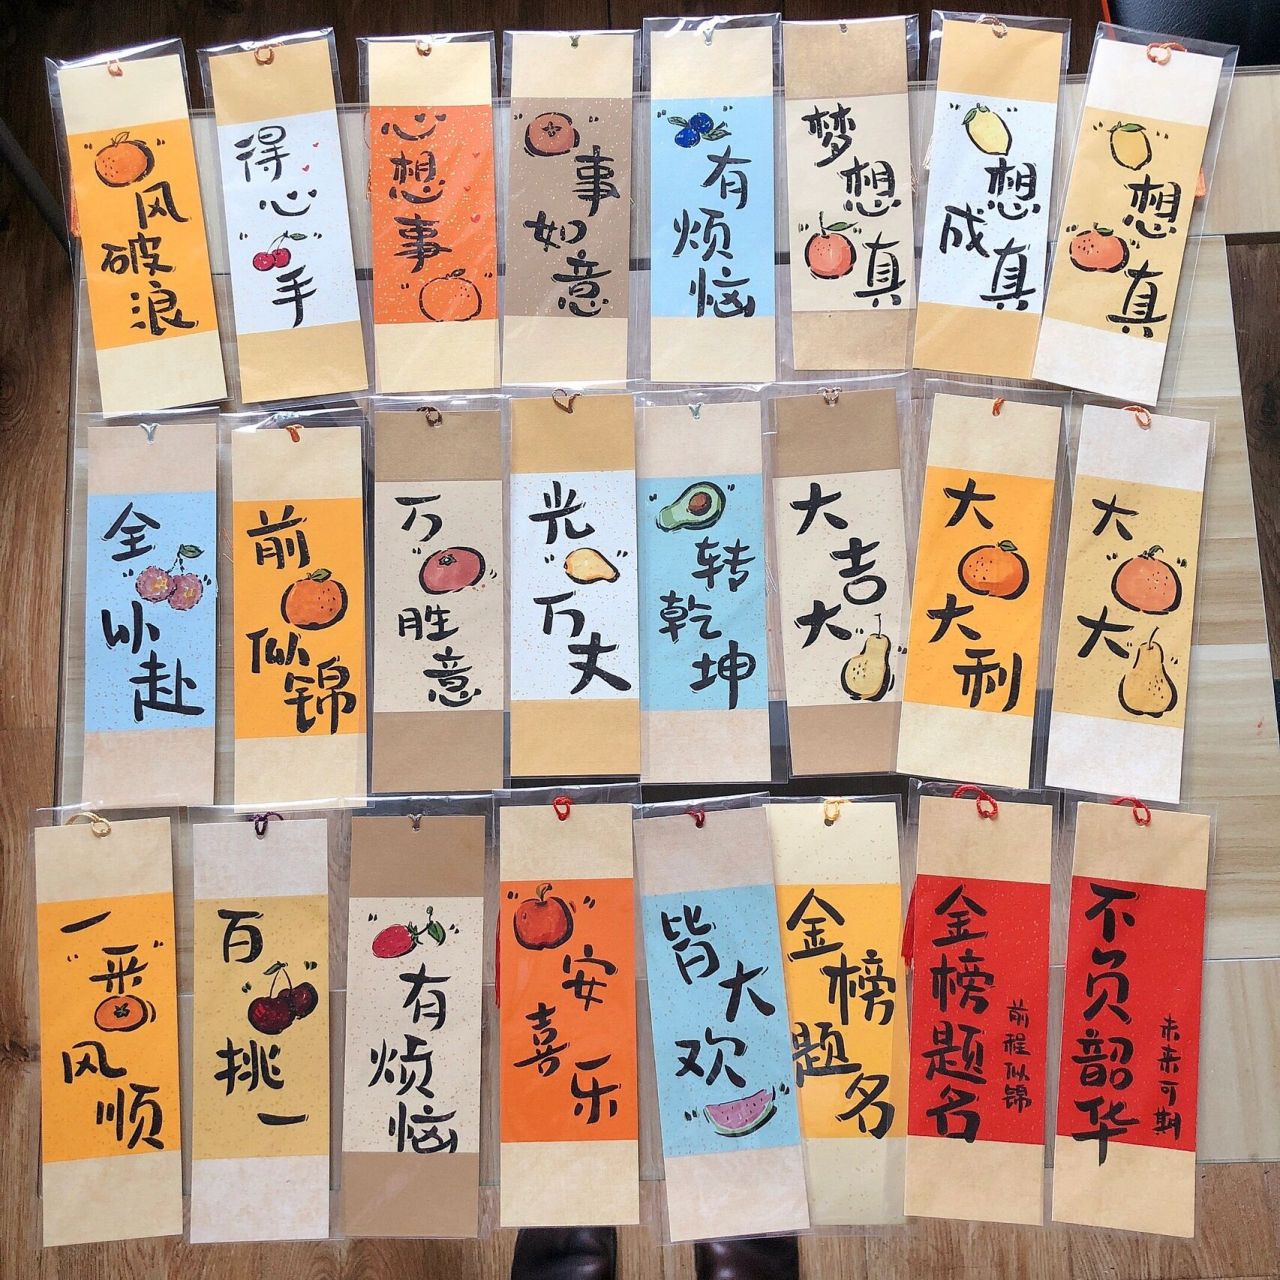 风破浪
得心手
心想事
事如意
有烦恼
梦想真
想成真
想真
全以赴
前似锦
万胜意
光万丈
转乾坤
大吉大
大大利
大大
一番风顺
百挑一
有烦恼
安喜乐
皆大欢
金榜题名
金榜题名
前程似锦
不负韶华
未来可期